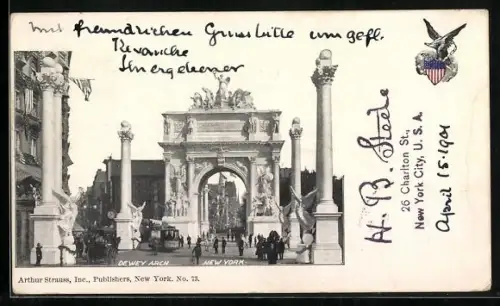 mit freundlichen Gruss bitte um gefl.
Revanche
Ihr ergebener
H. B. Steele
26 Charlton St.,
New York City, U. S. A.
April 15. 1901
DEWEY ARCH NEW YORK.
Arthur Strauss, Inc., Publishers, New York. No. 73.